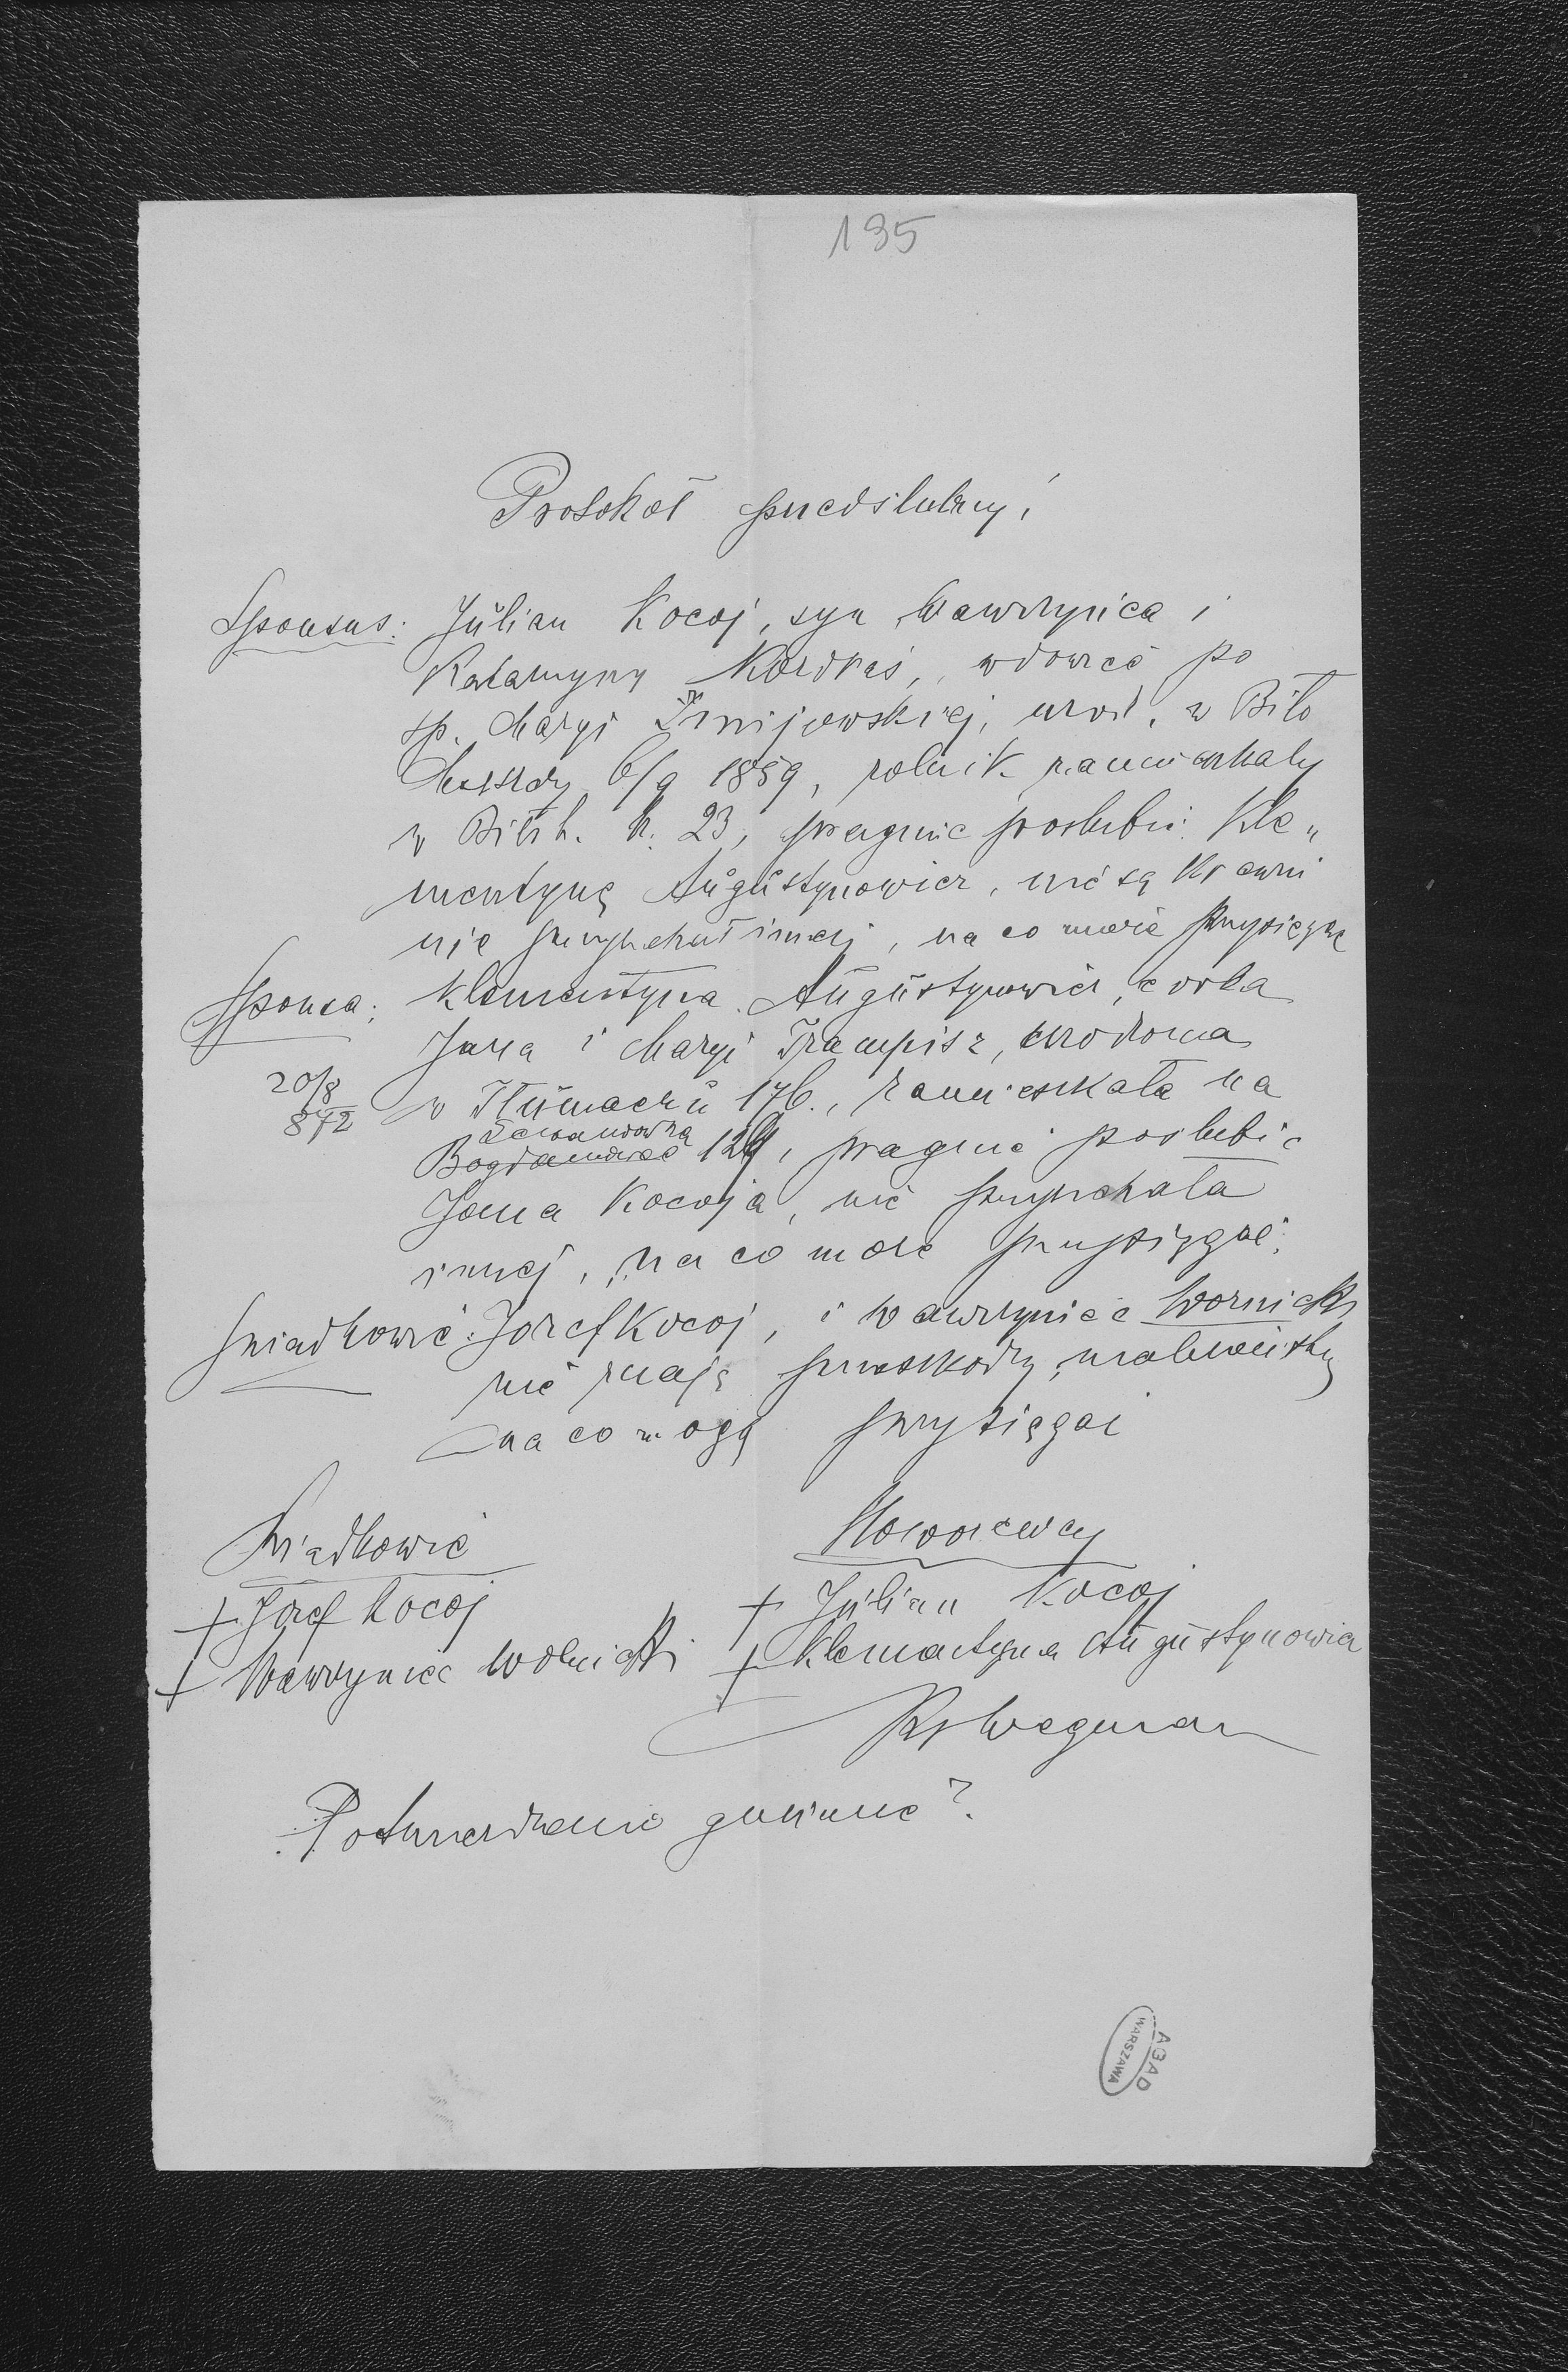 195
Protokół przedślubny.
Sponsus: Julian Kocoj, syn Wawrzyńca i
Katarzyny Kordyaś, wdowiec po
śp. Maryi Żmijowskiej, urod. w Biło
6/9 1859, rolnik zamieszkały
w Biłsk. N. 23, pragnie poślubić Kle„
mentynę Augustynowicz, nie są krewni
nie przyrzekał innej, na co może przysięgać
Sponsa: Klementyna Augustynowicz, córka
Jana i Maryi Trampisz, urodzona
20/8
872
w Tłumaczu 176., zamieszkała na
Lewandówka
Bogdanówce 129, pragnie poślubić
Jana Kocoja, nie przyrzekała
innej, na co może przysięgać.
Świadkowie: Józef Kocoj, i Wawrzyniec Wornicki
nie znają przeszkody małżeńskiej
na co mogą przysięgać
Świadkowie
Nowożeńcy
+ Józef Kocoj
+ Julian Kocoj
+ Wawrzyniec Wolnicki
+ Klementyna Augustynowicz
Ks Wegman
Potwierdzenie gminne?
AGAD
WARSZAWA